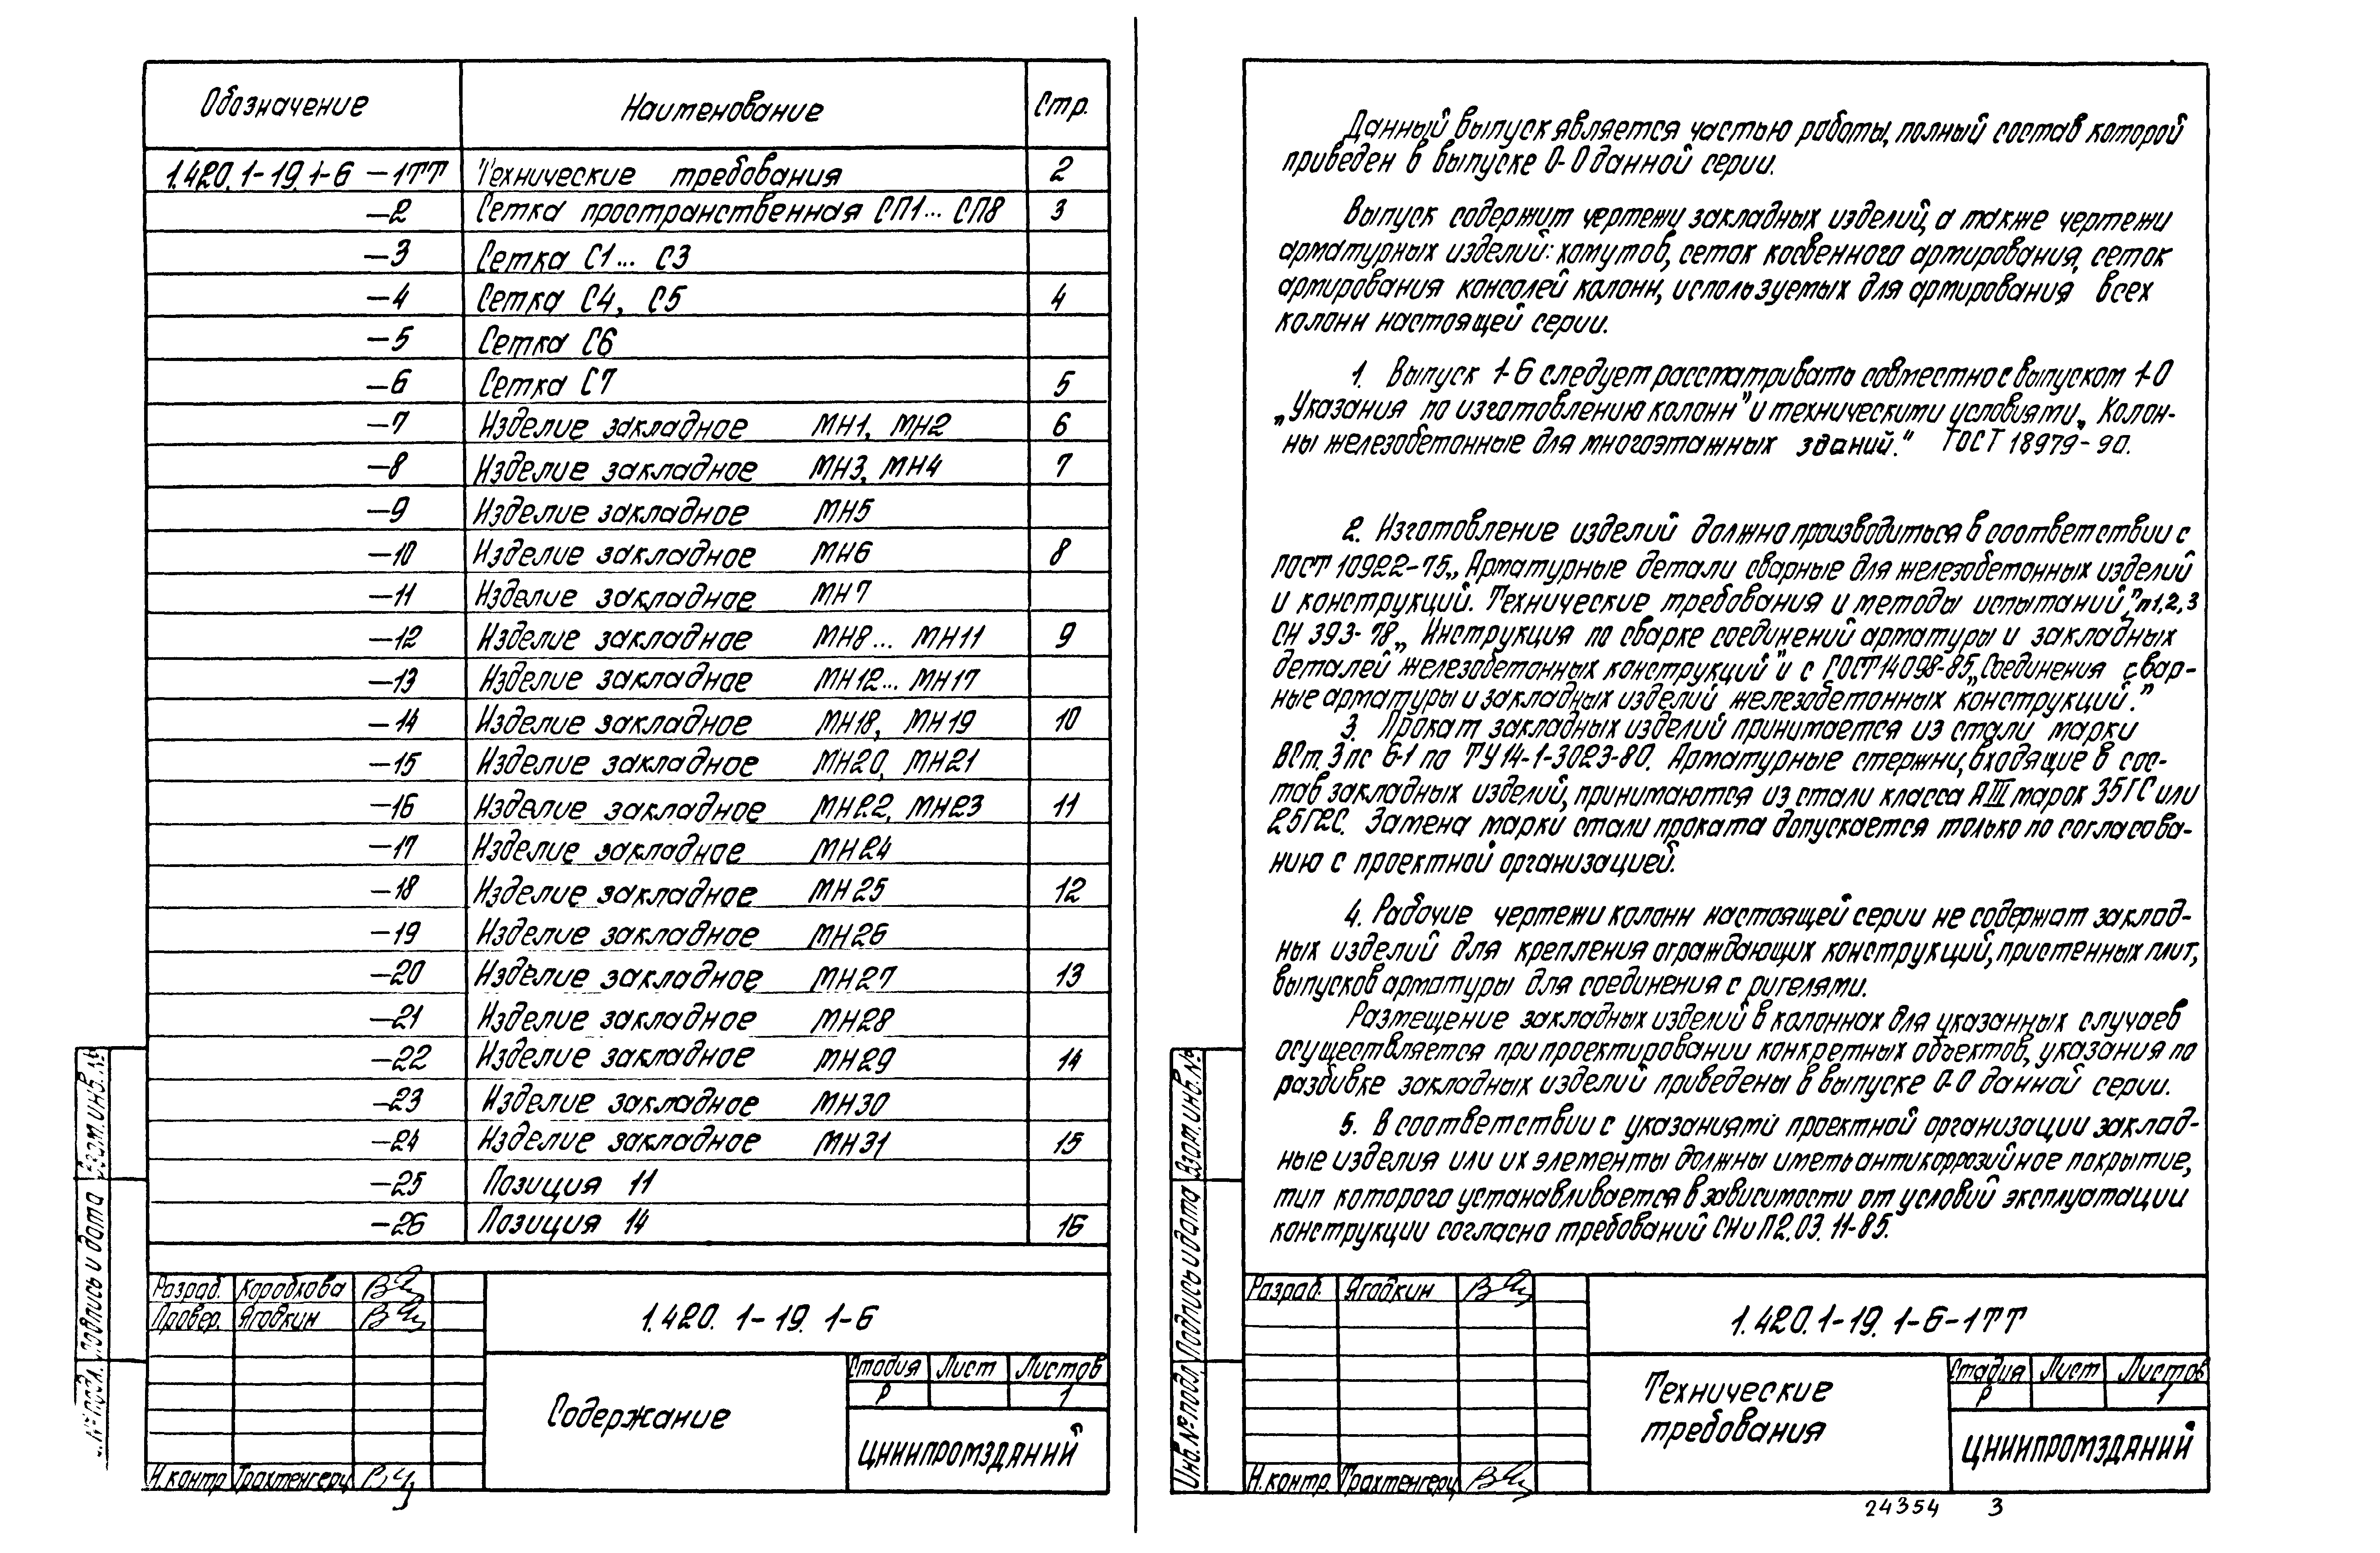 Обозначение Наименование Стр.
1.420.1-19.1-6 -1ТТ Технические требования 2
-2 Сетка пространственная СП1... СП8 3
-3 Сетка С1... С3
-4 Сетка С4, С5 4
-5 Сетка С6
-6 Сетка С7 5
-7 Изделие закладное МН1, МН2 6
-8 Изделие закладное МН3, МН4 7
-9 Изделие закладное МН5
-10 Изделие закладное МН6 8
-11 Изделие закладное МН7
-12 Изделие закладное МН8... МН11 9
-13 Изделие закладное МН12... МН17
-14 Изделие закладное МН18, МН19 10
-15 Изделие закладное МН20, МН21
-16 Изделие закладное МН22, МН23 11
-17 Изделие закладное МН24
-18 Изделие закладное МН25 12
-19 Изделие закладное МН26
-20 Изделие закладное МН27 13
-21 Изделие закладное МН28
-22 Изделие закладное МН29 14
-23 Изделие закладное МН30
-24 Изделие закладное МН31 15
-25 Позиция 11
-26 Позиция 14 16
Взам.инв.№
Подпись и дата
№ подл.
Разраб. Коробкова
Провер. Ягодкин
Н.контр Трахтенгерц
1.420. 1-19. 1-6
Содержание
Стадия Лист Листов
Р 1
ЦНИИПРОМЗДАНИЙ
Данный выпуск является частью работы, полный состав которой
приведен в выпуске 0-0 данной серии.
Выпуск содержит чертежи закладных изделий, а также чертежи
арматурных изделий: хомутов, сеток косвенного армирования, сеток
армирования консолей колонн, используемых для армирования всех
колонн настоящей серии.
1. Выпуск 1-6 следует рассматривать совместно с выпуском 1-0
„Указания по изготовлению колонн" и техническими условиями „Колон-
ны железобетонные для многоэтажных зданий." ГОСТ 18979-90.
2. Изготовление изделий должно производиться в соответствии с
ГОСТ 10922-75 „Арматурные детали сварные для железобетонных изделий
и конструкций. Технические требования и методы испытаний," п1,2,3
СН 393-78 „Инструкция по сварке соединений арматуры и закладных
деталей железобетонных конструкций" и с ГОСТ 14098-85 „Соединения свар-
ные арматуры и закладных изделий железобетонных конструкций."
3. Прокат закладных изделий принимается из стали марки
ВСт. 3 пс 6-1 по ТУ 14-1-3023-80. Арматурные стержни, входящие в сос-
тав закладных изделий, принимаются из стали класса АIII марок 35ГС или
25Г2С. Замена марки стали проката допускается только по согласова-
нию с проектной организацией.
4. Рабочие чертежи колонн настоящей серии не содержат заклад-
ных изделий для крепления ограждающих конструкций, пристенных плит,
выпусков арматуры для соединения с ригелями.
Размещение закладных изделий в колоннах для указанных случаев
осуществляется при проектировании конкретных объектов, указания по
разбивке закладных изделий приведены в выпуске 0-0 данной серии.
5. В соответствии с указаниями проектной организации заклад-
ные изделия или их элементы должны иметь антикоррозийное покрытие,
тип которого устанавливается в зависимости от условий эксплуатации
конструкции согласно требований СНиП 2.03. 11-85.
Взам.инв.№
Подпись и дата
Инв.№ подл.
Разраб. Ягодкин
Н.контр. Трахтенгерц
1.420.1-19. 1-6-1ТТ
Технические
требования
Стадия Лист Листов
Р 1
ЦНИИПРОМЗДАНИЙ
24354 3